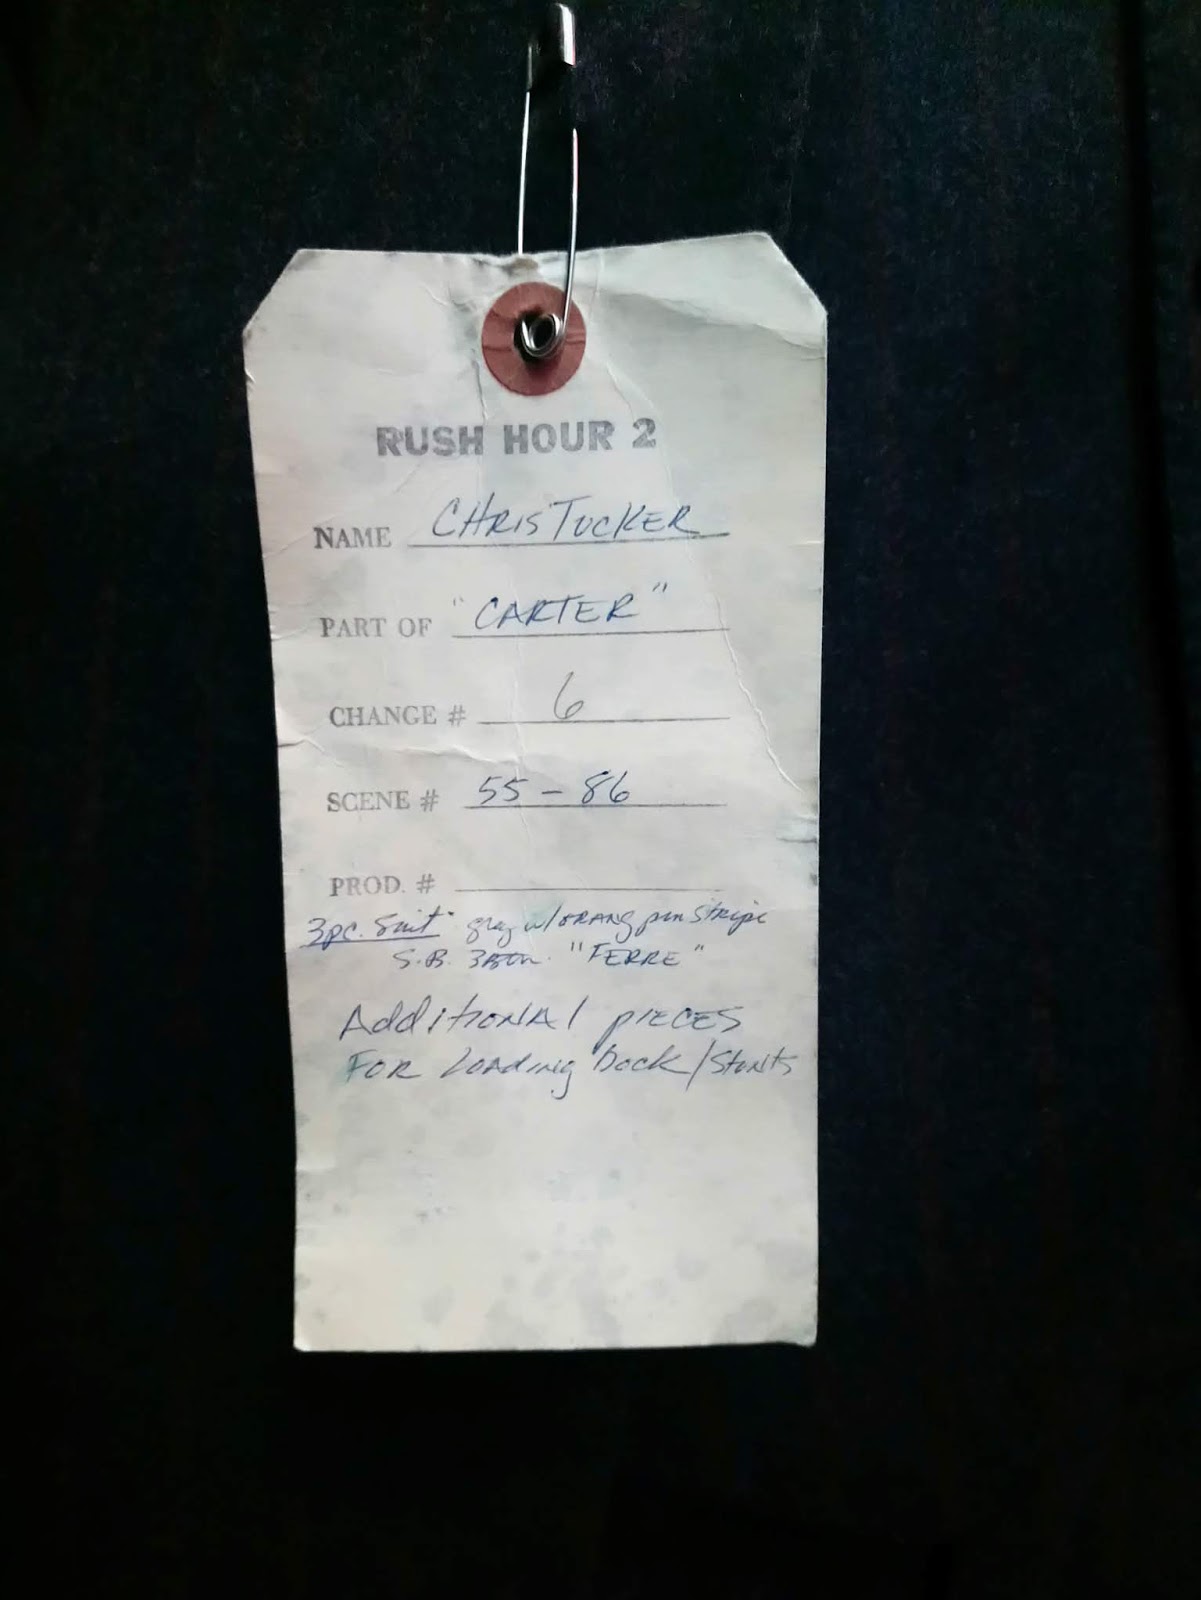 RUSH HOUR 2
NAME CHRIS TUCKER
PART OF "CARTER"
CHANGE # 6
SCENE # 55 - 86
PROD. #
3pc. Suit gray w/ORANG pin stripe
S.B. 3Btn. "FERRE"
Additional pieces
FOR Loading Dock/Stunts